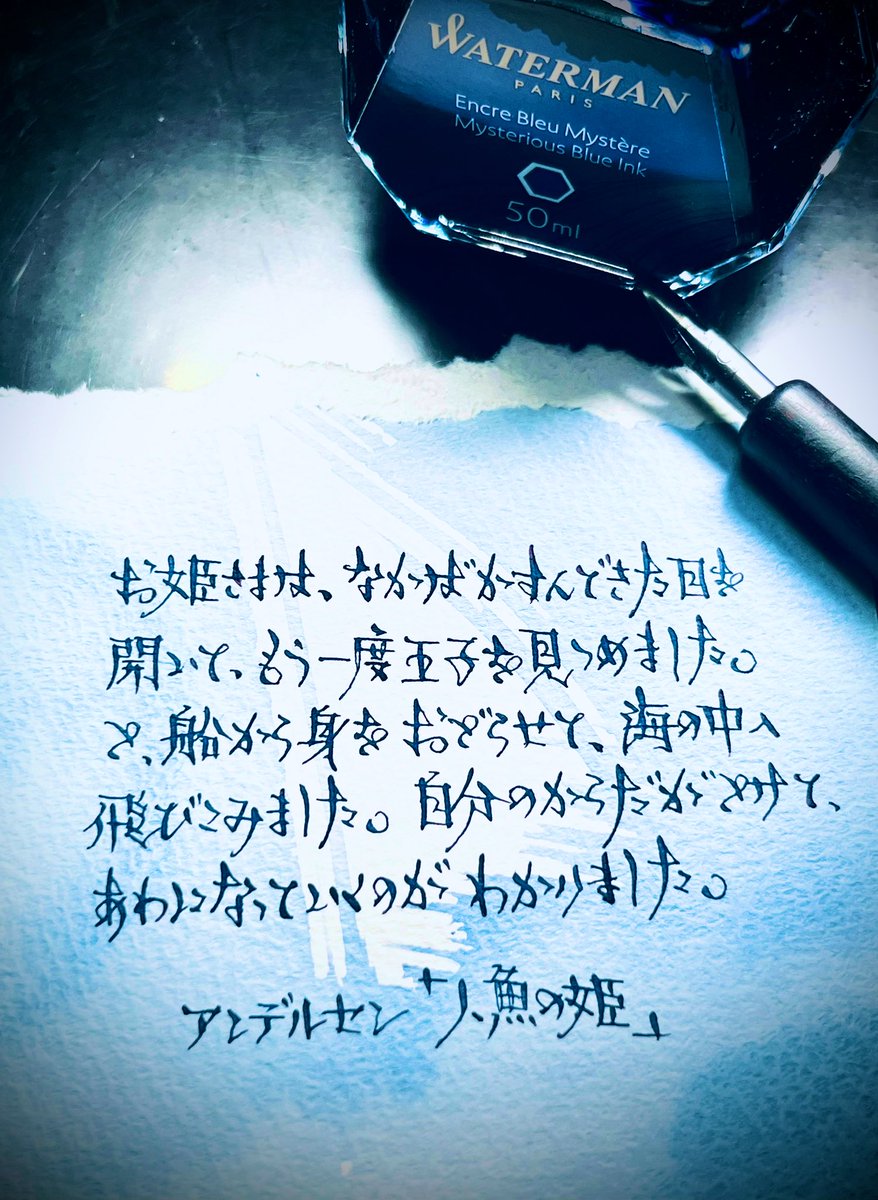 WATERMAN
PARIS
Encre Bleu Mystère
Mysterious Blue Ink
50ml
お姫さまは、なかばかすんできた目を
開いて、もう一度王子を見つめました。
と、船から身をおどらせて、海の中へ
飛びこみました。自分のからだがとけて、
あわになっていくのがわかりました。
アンデルセン「人魚の姫」